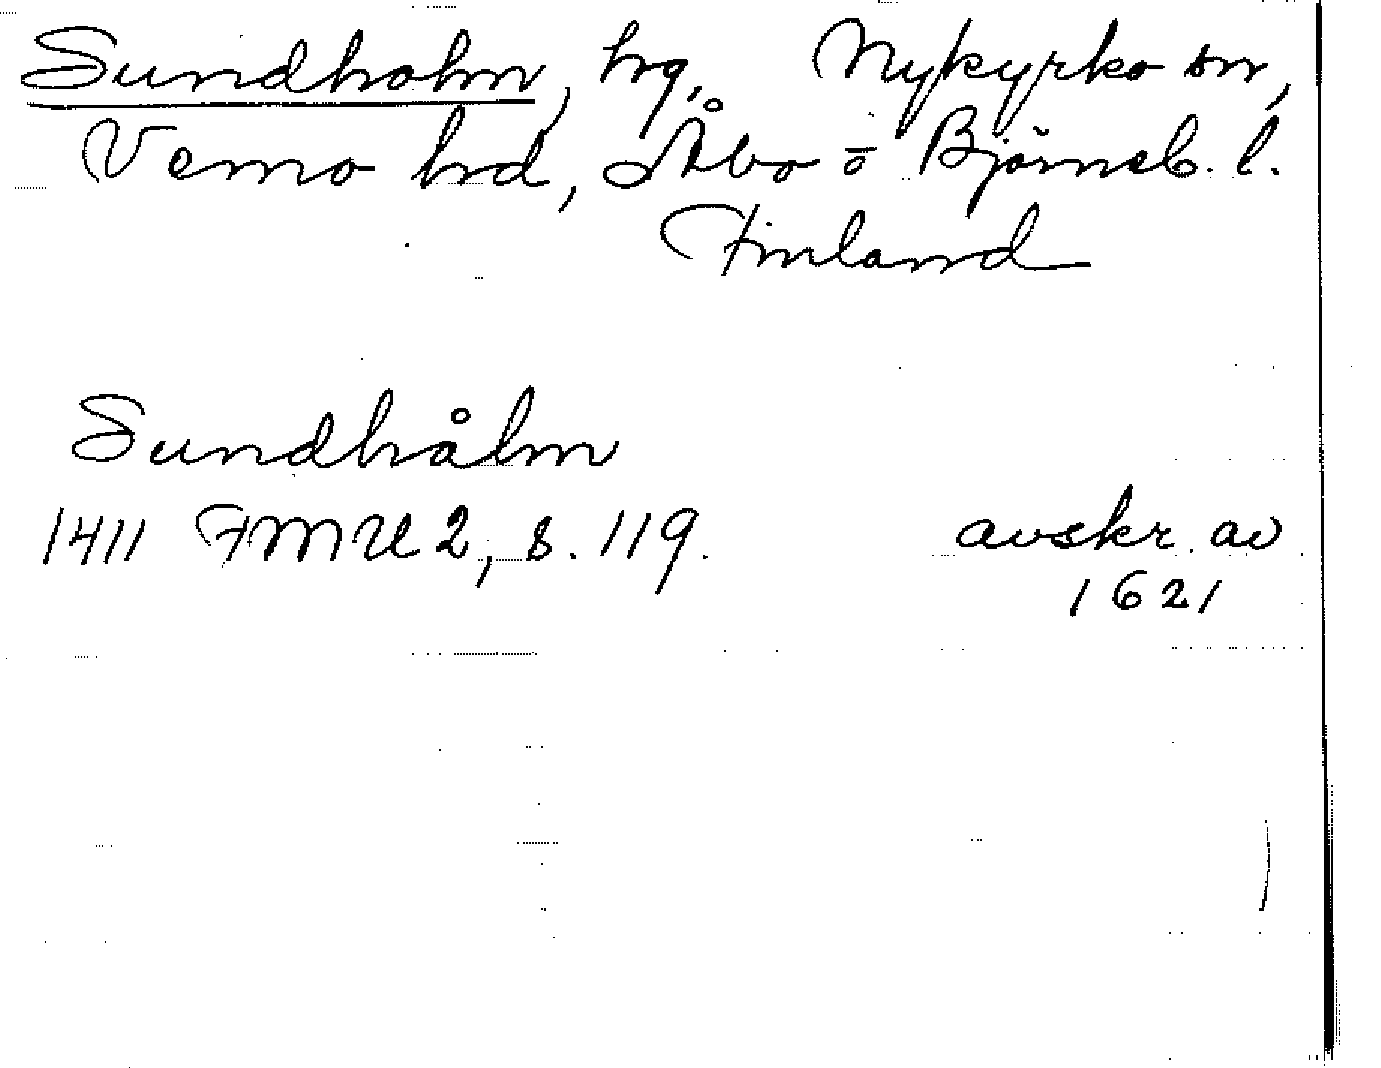 Sundholm, hrg, Nykyrko sn,
Vemo hrd, Åbo o Björneb. l.
Finland
Sundhålm
1411 FMU 2, s. 119. avskr. av
1621